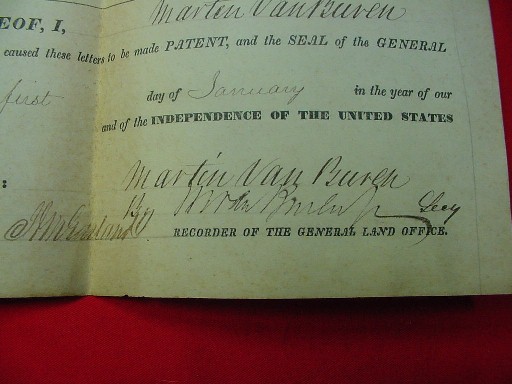 Martin Van Buren
EOF, I,
caused these letters to be made PATENT, and the SEAL of the GENERAL
first day of January in the year of our
and of the INDEPENDENCE OF THE UNITED STATES
: Martin Van Buren
By Secy
RECORDER OF THE GENERAL LAND OFFICE.